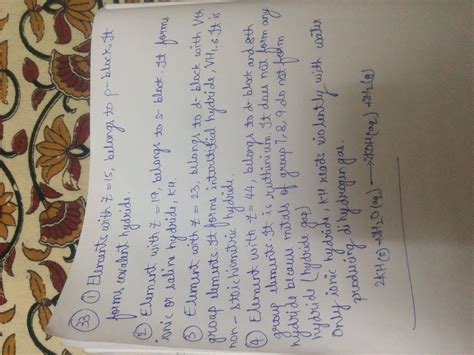 33 ① Elements with Z = 15, belongs to p-block. It
forms covalent hydride.
② Element with Z = 19, belongs to s-block. It forms
ionic or saline hydride, KH.
③ Element with Z = 23, belongs to d-block with Vth
group elements It forms interstitial hydride, VH1.6. It is
non-stoichiometric hydride.
④ Element with Z = 44, belongs to d-block and 8th
group elements. It is ruthinium. It does not form any
hydride because metals of group 7, 8, 9 do not form
hydride (hydride gap)
Only ionic hydride, KH reads violently with water
producing dihydrogen gas.
2KH(s) + 2H2O(aq) → 2KOH(aq) + 2H2(g)